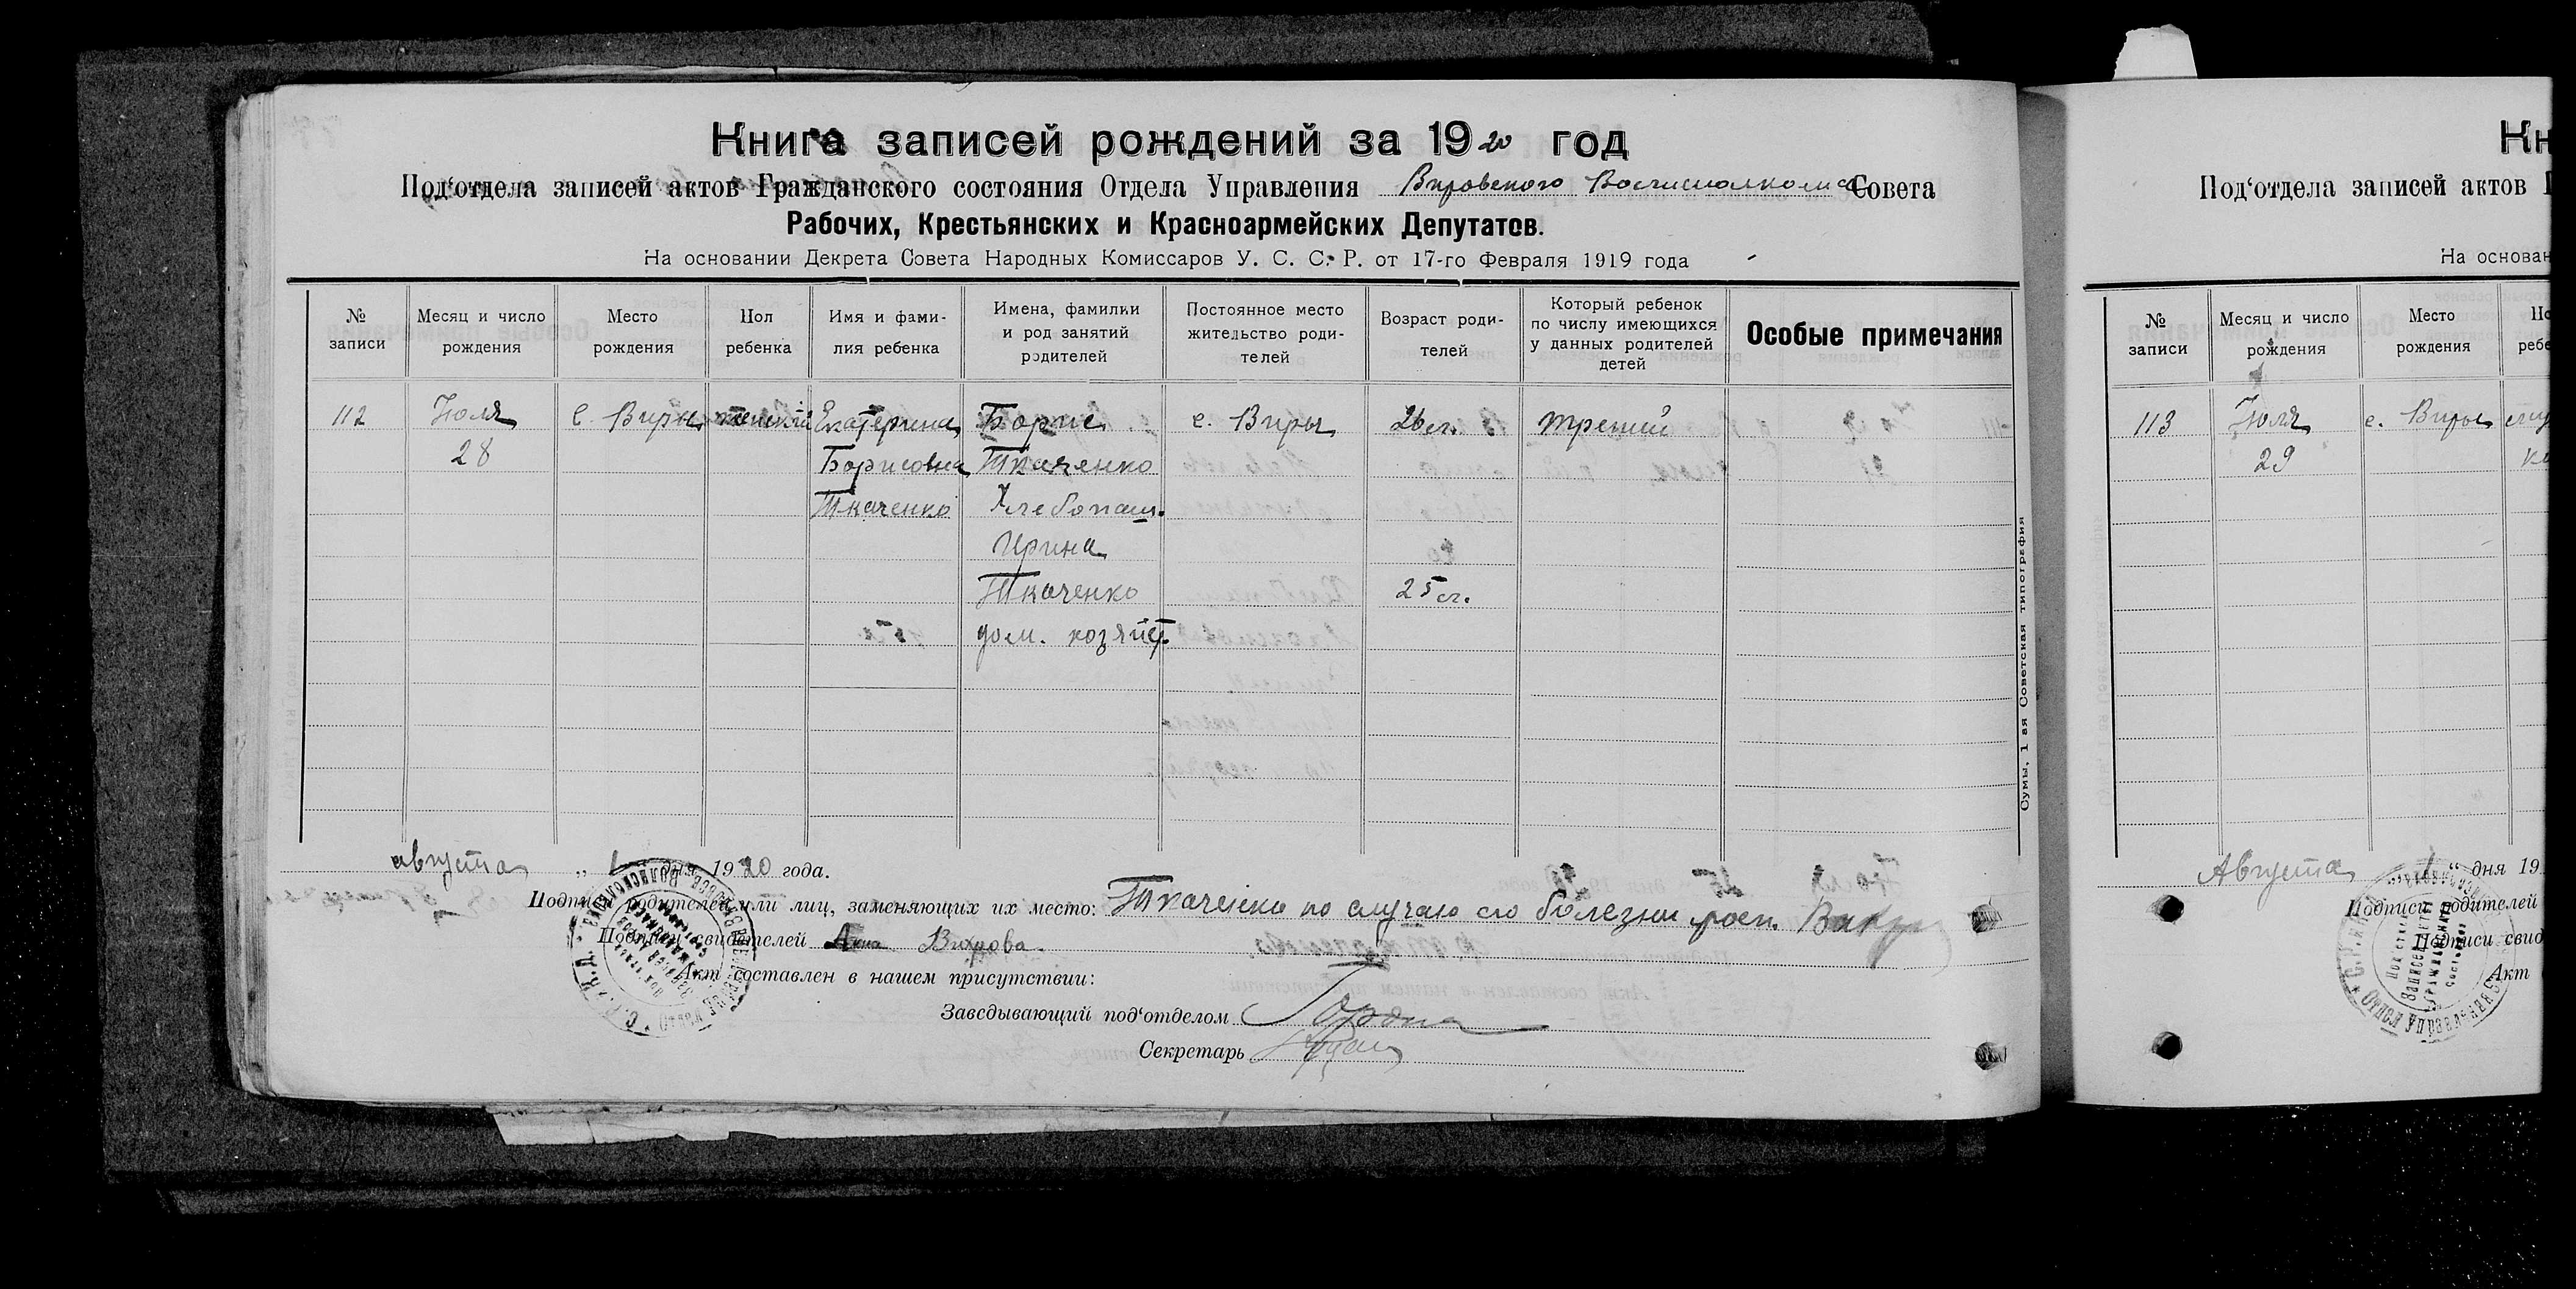 Книга записей рождений за 1920 год
Под‘отдела записей актов Гражданского состояния Отдела Управления Вировского Волисполкома Совета
Рабочих, Крестьянских и Красноармейских Депутатов.
На основании Декрета Совета Народных Комиссаров У. С. С. Р. от 17-го Февраля 1919 года
№ записи
Месяц и число рождения
Место рождения
Пол ребенка
Имя и фамилия ребенка
Имена, фамилии и род занятий родителей
Постоянное место жительство родителей
Возраст родителей
Который ребенок по числу имеющихся у данных родителей детей
Особые примечания
112 Июля с. Виры женский Екатерина Борис с. Виры 26 л. третий
28 Борисовна Ткаченко
Ткаченко Хлебопаш.
Ирина
Ткаченко 25 л.
дом. хозяйст.
августа „ 1 дня 1920 года.
Подписи родителей или лиц, заменяющих их место: Ткаченко по случаю его болезни росп.
Подписи свидетелей Анна Вихрова
Акт составлен в нашем присутствии:
Заведывающий под‘отделом
Секретарь
Сумы, 1 ая Советская типография
Кн
Под‘отдела записей актов Г
На основан
№ записи
Месяц и число рождения
Место рождения
113 Июля с. Виры
29
Августа „ 1 „ дня 19
Подписи родителей
Подписи свид
Акт